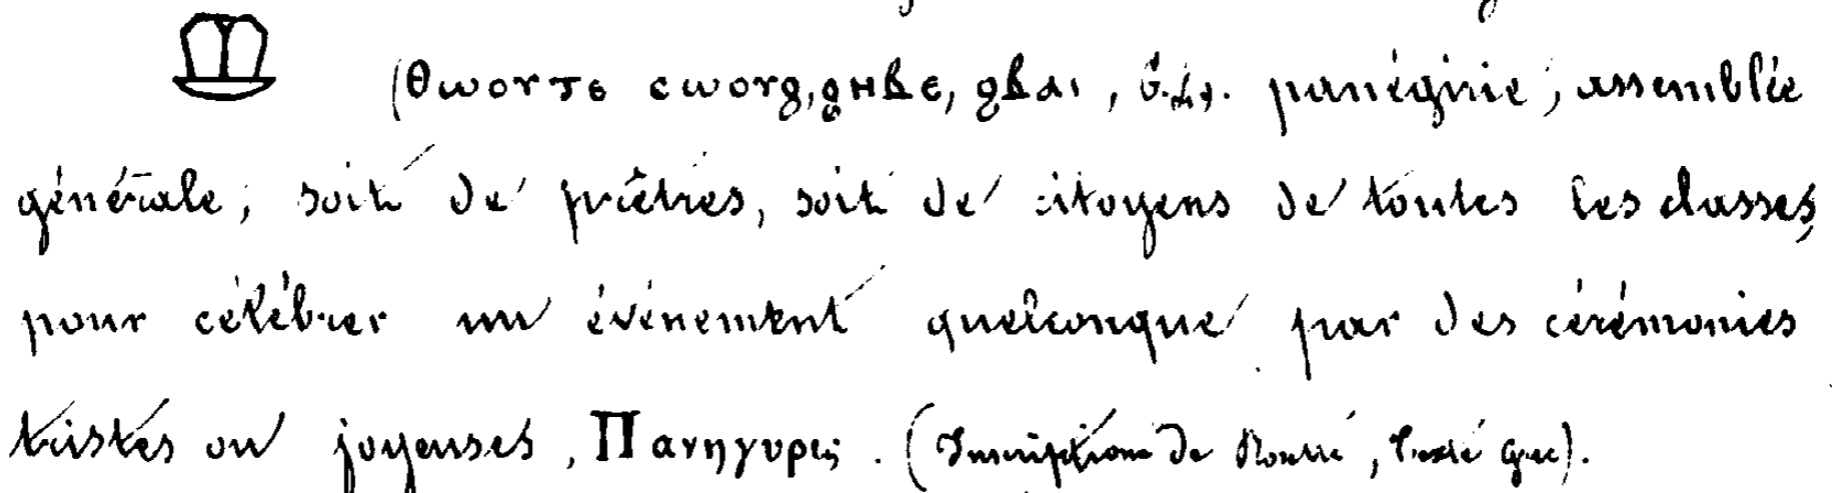 (ⲑⲱⲟⲩⲧⲉ ⲥⲱⲟⲩϩ, ϩⲏⲃⲉ, ϩⲃⲁⲓ, panégirie, assemblée
générale, soit de prêtres, soit de citoyens de toutes les classes,
pour célébrer un événement quelconque par des cérémonies
tristes ou joyeuses, Πανηγυρις. (Inscription de Rosette, texte grec).